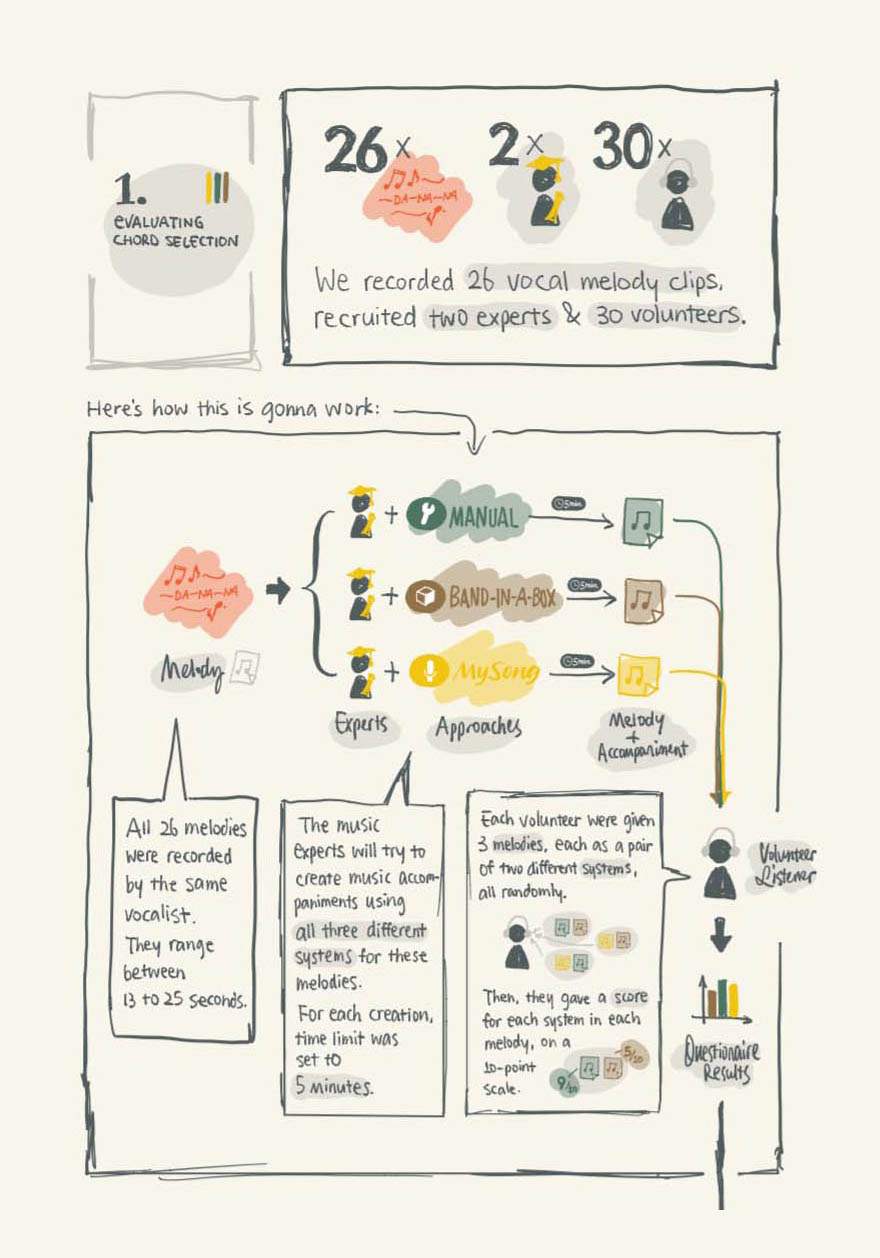 1.
EVALUATING
CHORD SELECTION
26x
~DA-NA-NA
2x
30x
We recorded 26 vocal melody clips,
recruited two experts & 30 volunteers.
Here's how this is gonna work:
~DA-NA-NA
Melody
+ MANUAL
5min
+ BAND-IN-A-BOX
5min
+ MySong
5min
Experts
Approaches
Melody
+
Accompaniment
All 26 melodies
were recorded
by the same
vocalist.
They range
between
13 to 25 seconds.
The music
experts will try to
create music accom-
paniments using
all three different
systems for these
melodies.
For each creation,
time limit was
set to
5 minutes.
Each volunteer were given
3 melodies, each as a pair
of two different systems,
all randomly.
Then, they gave a score
for each system in each
melody, on a
10-point
scale.
9/10
5/10
Volunteer
Listener
Questionaire
Results